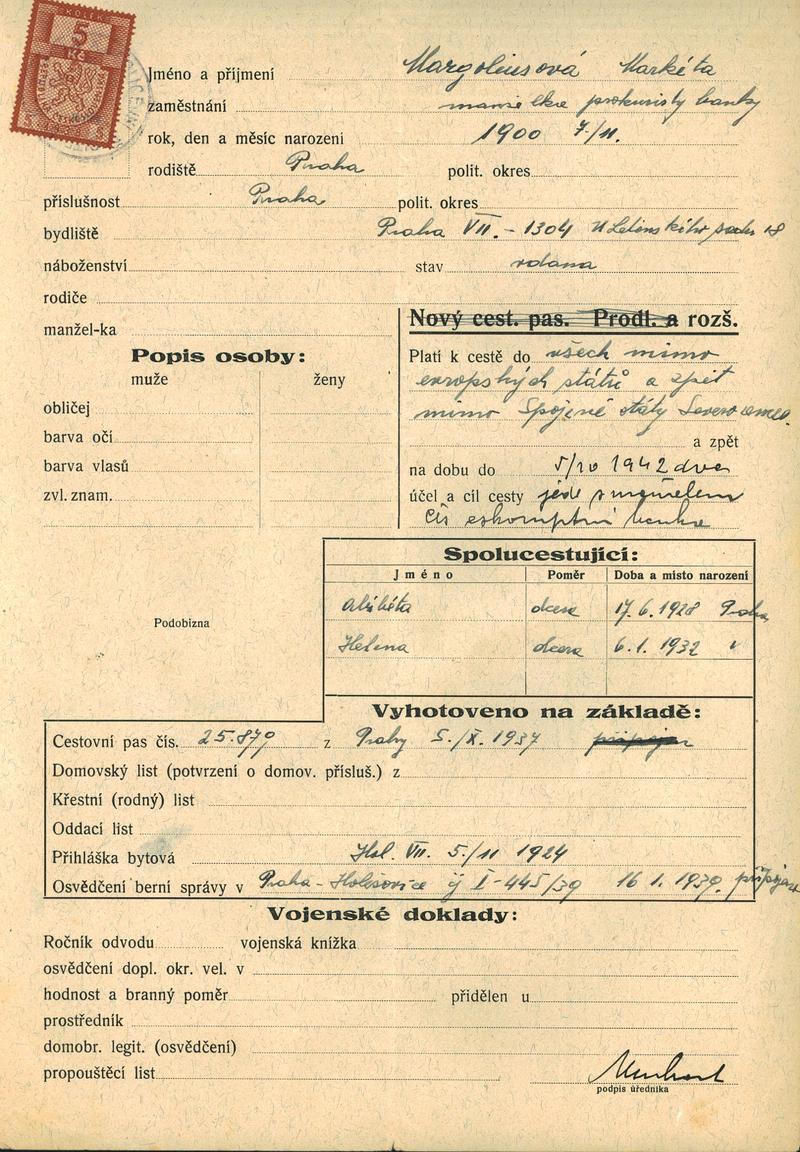 KOLEK
5
Kč
Jméno a příjmení Margoliusová Markéta
zaměstnání manželka prokuristy banky
rok, den a měsíc narození 1900 7./11.
rodiště Praha polit. okres
příslušnost Praha polit. okres
bydliště Praha VII. - 1304 U Letenského sadu 18
náboženství stav vdana
rodiče
manžel-ka
Nový cest. pas. Prodl. a rozš.
Popis osoby:
muže ženy
obličej
barva očí
barva vlasů
zvl. znam.
Platí k cestě do všech mimo
evropských států a zpět
mimo Spojené státy Severo
a zpět
na dobu do 5/10 1942
účel a cíl cesty jede s manželem
eskomptní banka
Spolucestující:
Jméno Poměr Doba a místo narození
Alžběta dcera 17.6.1928 Praha
Helena dcera 6.1.1932 "
Podobizna
Vyhotoveno na základě:
Cestovní pas čís. 25.879 z Prahy 5./X. 1937
Domovský list (potvrzení o domov. přísluš.) z
Křestní (rodný) list
Oddací list
Přihláška bytová Hol. VII. 5./11 1924
Osvědčení berní správy v Praha - Holešovice čj I-445/39 16 1. 1939. připojeno
Vojenské doklady:
Ročník odvodu vojenská knížka
osvědčení dopl. okr. vel. v
hodnost a branný poměr přidělen u
prostředník
domobr. legit. (osvědčení)
propouštěcí list
podpis úředníka